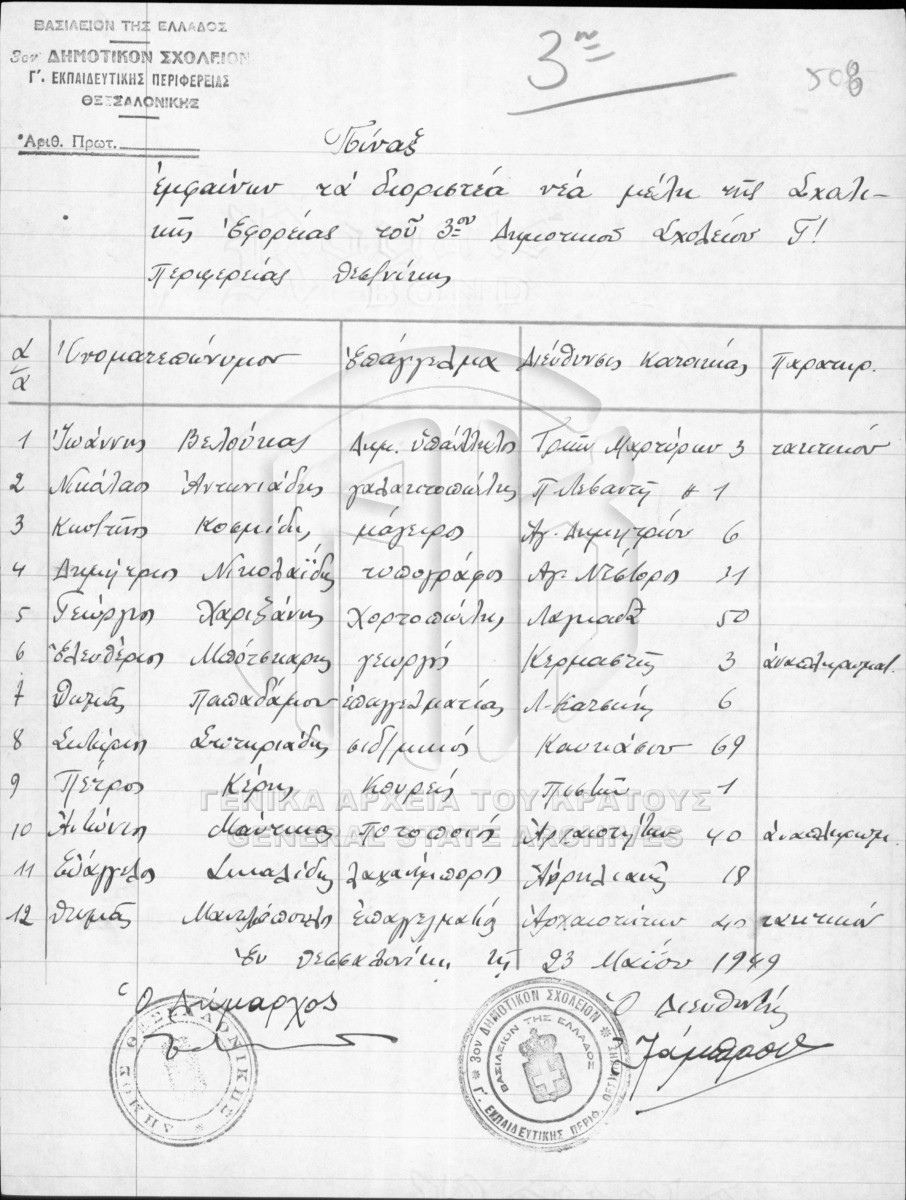 ΒΑΣΙΛΕΙΟΝ ΤΗΣ ΕΛΛΑΔΟΣ
3ον ΔΗΜΟΤΙΚΟΝ ΣΧΟΛΕΙΟΝ
Γ'. ΕΚΠΑΙΔΕΥΤΙΚΗΣ ΠΕΡΙΦΕΡΕΙΑΣ
ΘΕΣΣΑΛΟΝΙΚΗΣ
Ἀριθ. Πρωτ.
3ον
Πίναξ
ἐμφαίνων τά διοριστέα νέα μέλη τῆς Σχολι-
κῆς Ἐφορείας τοῦ 3ου Δημοτικοῦ Σχολείου Γ!
Περιφερείας Θεσ/νίκης
α/α Ὀνοματεπώνυμον Ἐπάγγελμα Διεύθυνσις Κατοικίας Παρατηρ.
1 Ἰωάννης Βελούκας Δημ. ὑπάλληλος Τριῶν Μαρτύρων 3 τακτικόν
2 Νικόλαος Ἀντωνιάδης γαλακτοπώλης Π Λεβαντῆ 1
3 Κων/τῖνος Κοσμίδης μάγειρος Ἁγ. Δημητρίου 6
4 Δημήτριος Νικολαΐδης τυπογράφος Ἁγ. Νέστορος 21
5 Γεώργιος Χαριζάνης Χορτοπώλης Λαγκαδᾶ 50
6 Ἐλευθέριος Μπότσκαρης γεωργός Κερμαστῆς 3 ἀναπληρωματ.
7 Θωμᾶς Παπαδάμου ἐπαγγελματίας Λ. Κατσώνη 6
8 Σωτήριος Σωτηριάδης σιδ/μικός Καυκάσου 69
9 Πέτρος Κέρης Κουρεύς 1
10 Ἀντώνιος ποτοποιός Ἀρχαιοτήτων 40 ἀναπληρωμ.
11 Εὐάγγελος λαχανέμπορος 18
12 Θωμᾶς ἐπαγγελματίας Ἀρχαιοτήτων 40 τακτικόν
Ἐν Θεσσαλονίκῃ τῇ 23 Μαΐου 1949
Ὁ Δήμαρχος Ὁ Διευθυντής
ΔΗΜΟΣ ΘΕΣΣΑΛΟΝΙΚΗΣ
3ον ΔΗΜΟΤΙΚΟΝ ΣΧΟΛΕΙΟΝ
Γ'. ΕΚΠΑΙΔΕΥΤΙΚΗΣ ΠΕΡΙΦ.
ΒΑΣΙΛΕΙΟΝ ΤΗΣ ΕΛΛΑΔΟΣ
ΓΕΝΙΚΑ ΑΡΧΕΙΑ ΤΟΥ ΚΡΑΤΟΥΣ
GENERAL STATE ARCHIVES